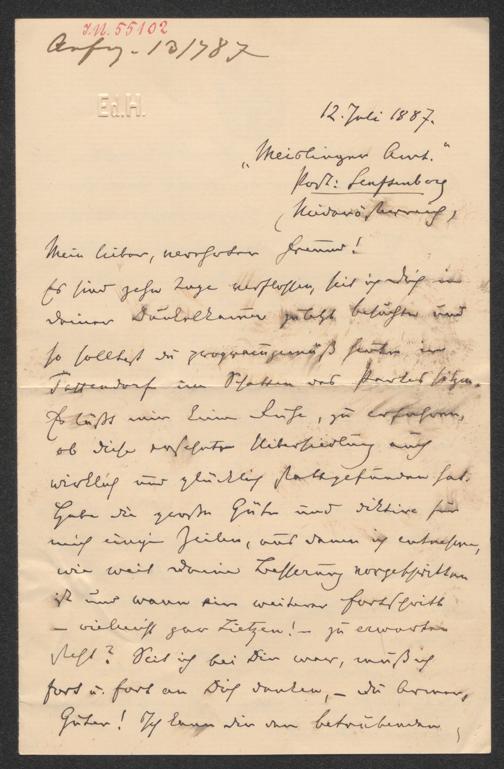 J.N. 55102
Anfg. 13/787
Ed.H.
12. Juli 1887.
„Meidlinger Amt."
Post: Senftenberg
(Niederösterreich)
Mein lieber, verehrter Freund!
Es sind zehn Tage verflossen, seit ich Dich in
deiner Dunkelkammer zuletzt besuchte und
so solltest du programmgemäß heute in
Tattendorf im Schatten des Parkes sitzen.
Es läßt mir keine Ruhe, zu erfahren,
ob diese ersehnte Uibersiedlung auch
wirklich und glücklich stattgefunden hat.
Habe die große Güte und diktire für
mich einige Zeilen, aus denen ich entnehme,
wie weit Deine Besserung vorgeschritten
ist und wann ein weiterer Fortschritt
– vielleicht gar – zu erwarten
steht? Seit ich bei Dir war, muß ich
fort u. fort an Dich denken, – du Armer,
Guter! Ich kann dir den betrübenden